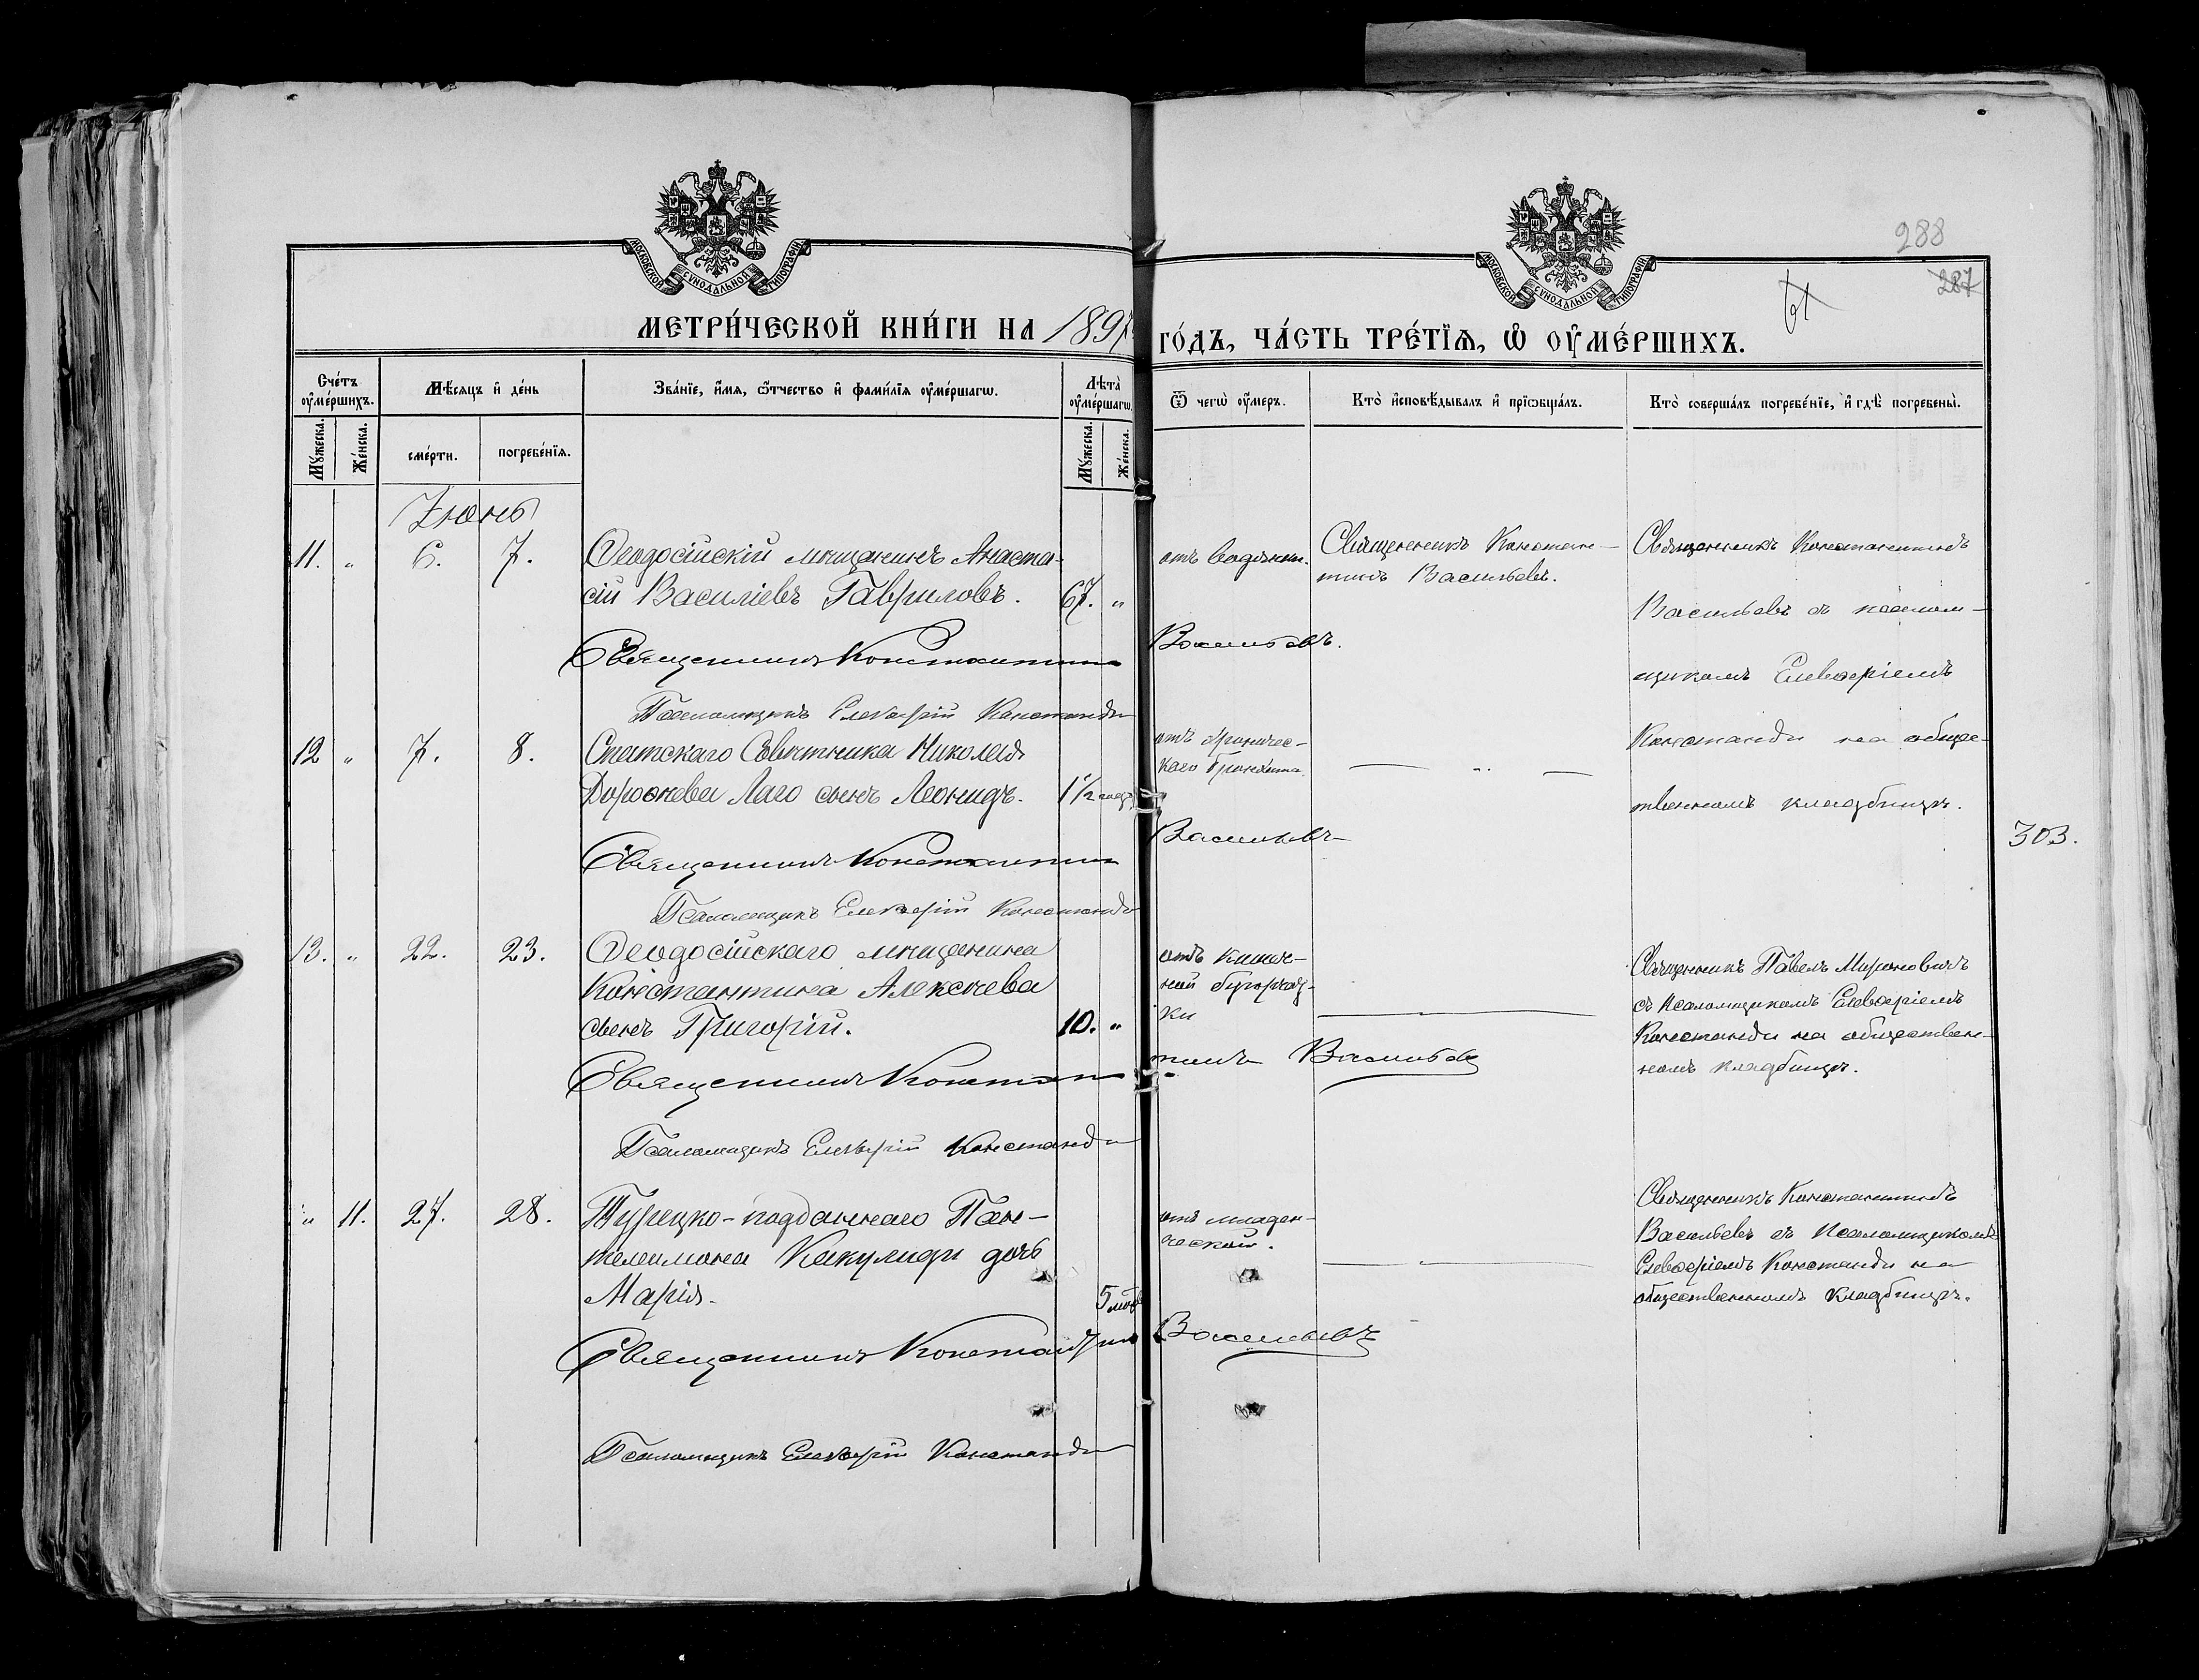 288
287
МОСКОВСКОЙ СѴНОДАЛЬНОЙ ТИПОГРАФІИ
МОСКОВСКОЙ СѴНОДАЛЬНОЙ ТИПОГРАФІИ
МЕТРИ́ЧЕСКОЙ КНИ́ГИ НА 1897 ГО́ДЪ, ЧА́СТЬ ТРЕ́ТІѦ, Ѽ ОУ҆МЕ́РШИХЪ.
Сче́тъ оу҆ме́ршихъ.
Мѣ́сяцъ и҆ де́нь
Зва́нїе, и҆́мя, ѻ҆́тчество и҆ фами́лїя оу҆ме́ршагѡ.
Лѣ́та оу҆ме́ршагѡ.
Ѿ чегѡ̀ оу҆́меръ.
Кто̀ и҆сповѣ́дывалъ и҆ прїѡбща́лъ.
Кто̀ соверша́лъ погребе́нїе, и҆ гдѣ̀ погребены̀.
Мꙋ́жеска.
Же́нска.
сме́рти.
погребе́нїѧ.
Мꙋ́жеска.
Же́нска.
Іюнь
11. " 6. 7. Ѳеодосійскій мѣщанинъ Анаста-
сій Василіевъ Гавриловъ. 67. "
отъ водянки.
Священникъ Констан-
тинъ Васильевъ.
Священникъ Константинъ
Васильевъ съ псалом-
щикомъ Елевѳеріемъ
Констанди на обще-
ственномъ кладбищѣ.
Священникъ Константинъ Васильевъ.
Псаломщикъ Елевѳерій Констанди
12 " 7. 8. Статскаго Совѣтника Николая
Дороѳеева Лаго сынъ Леонидъ. 1½ года
отъ хроничес-
каго бронхита.
Священникъ Константинъ Васильевъ
303.
Псаломщикъ Елевѳерій Констанди
13. " 22. 23. Ѳеодосійскаго мѣщанина
Константина Алексѣева
сынъ Григорій. 10. "
отъ кишеч-
ной бугорчат-
ки
Священникъ Павелъ Мироновичъ
съ псаломщикомъ Елевѳеріемъ
Констанди на обществен-
номъ кладбищѣ.
Священникъ Константинъ Васильевъ
Псаломщикъ Елевѳерій Констанди
" 11. 27. 28. Турецко-подданнаго Пан-
телеимона Какулиди дочь
Марія. 5 мѣс.
отъ младен-
ческой.
Священникъ Константинъ
Васильевъ съ псаломщикомъ
Елевѳеріемъ Констанди на
общественномъ кладбищѣ.
Священникъ Константинъ Васильевъ
Псаломщикъ Елевѳерій Констанди